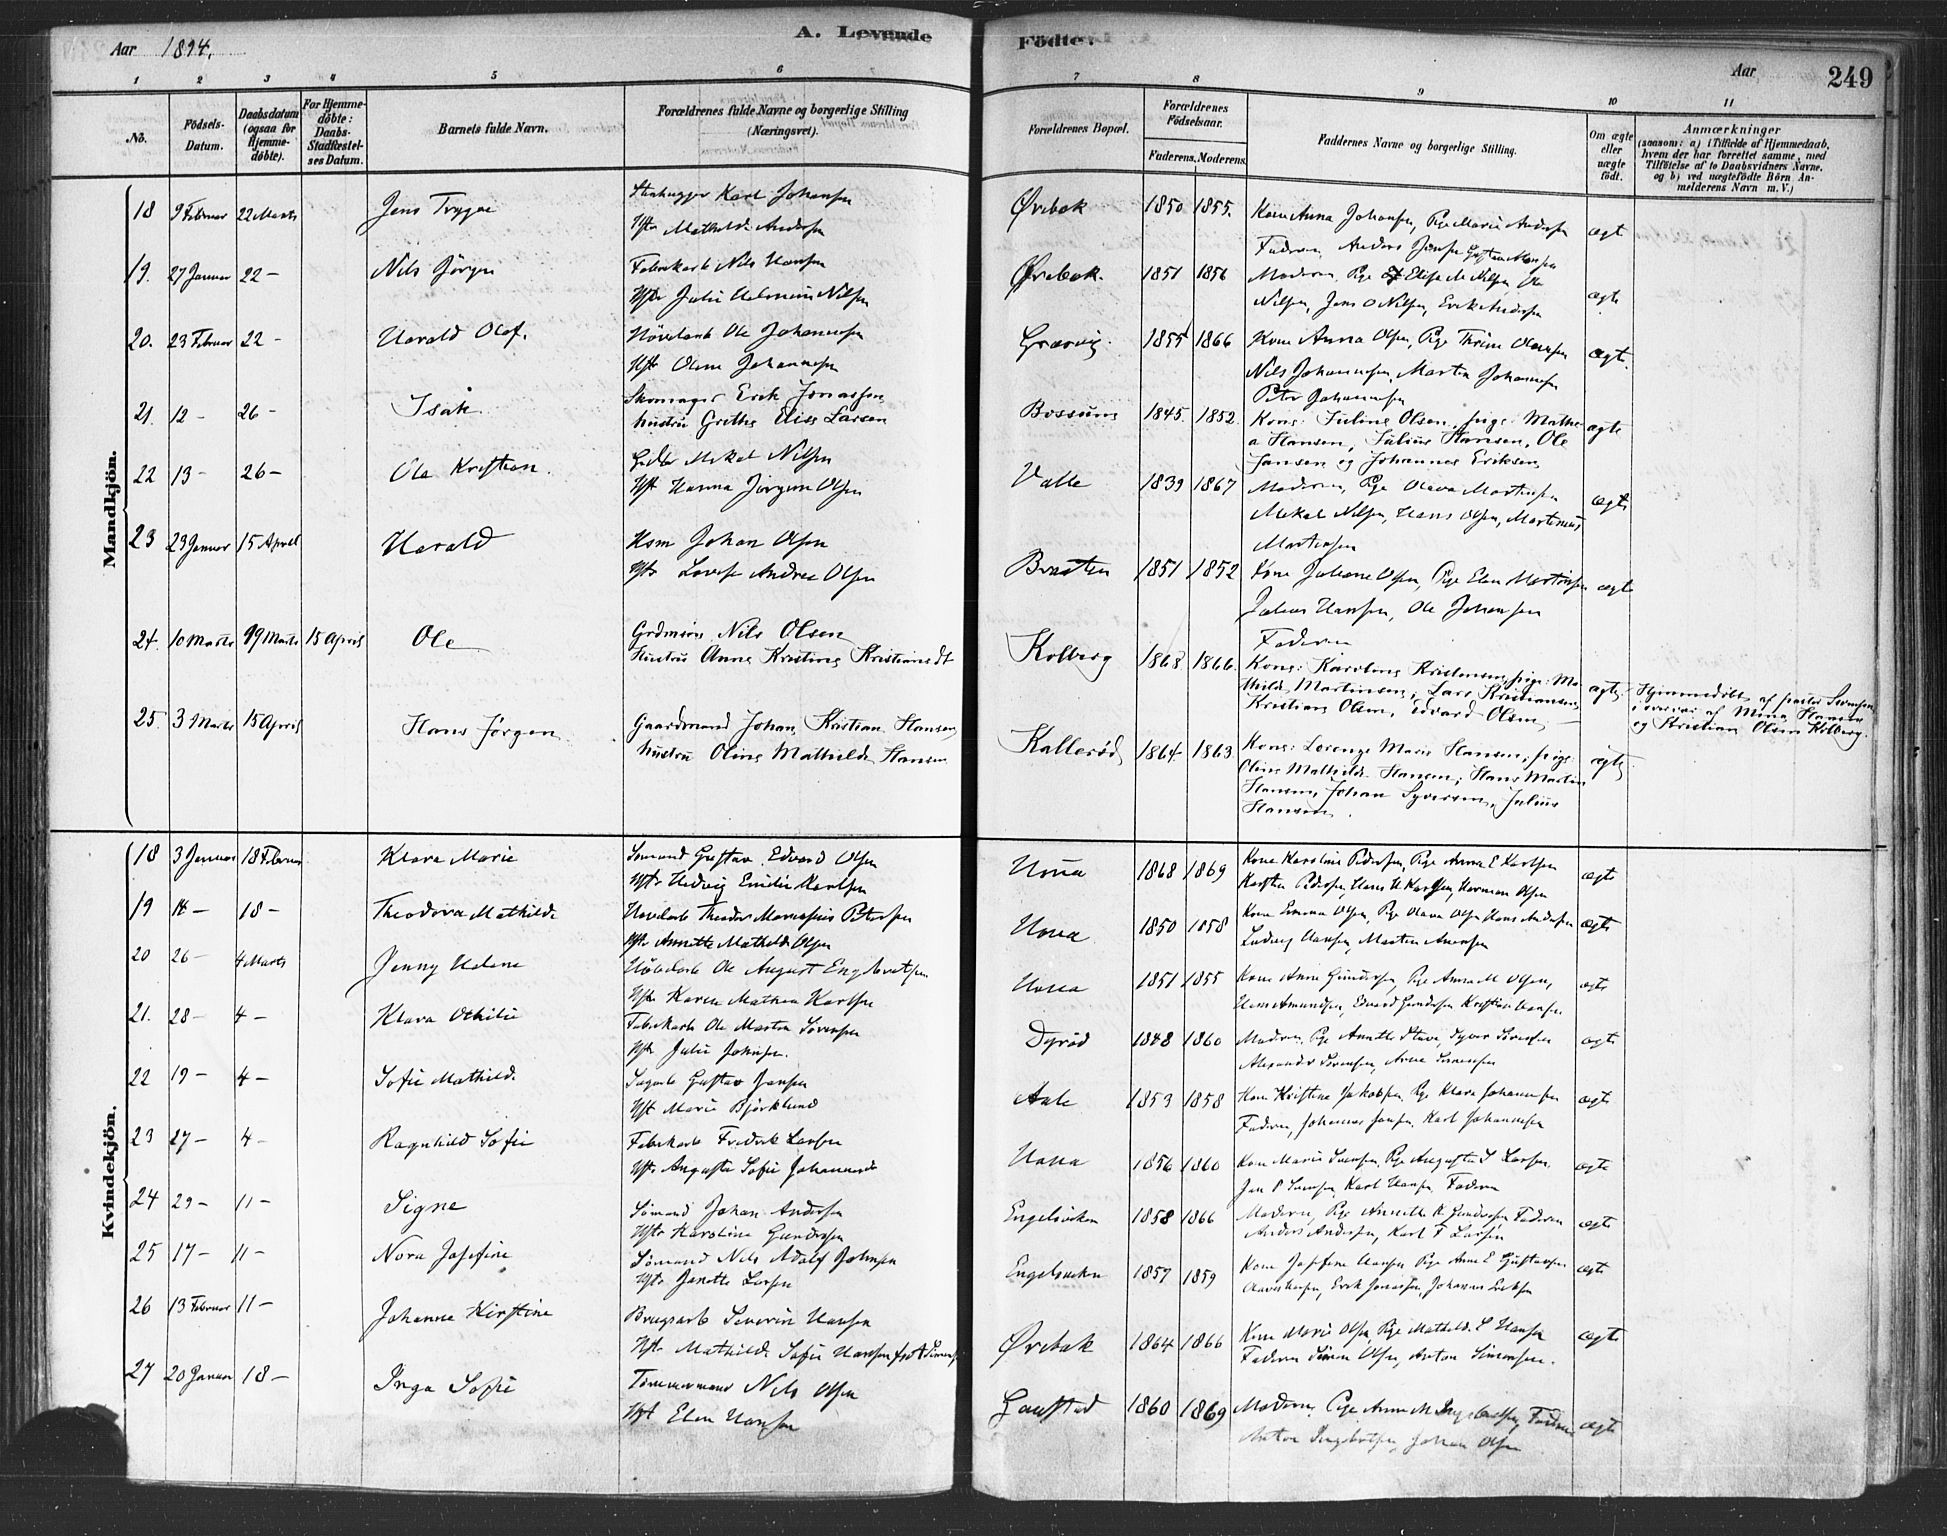 Aar 1894.
A. Levende
Fødte.
Aar
249
1 2 3 4 5 6 7 8 9 10 11
No.
Födsels-Datum.
Daabsdatum (ogsaa for Hjemme-döbte).
For Hjemme-döbte: Daabs-Stadfæstel-ses Datum.
Barnets fulde Navn.
Forældrenes fulde Navne og borgerlige Stilling (Næringsvei).
Forældrenes Bopæl.
Forældrenes Födselsaar.
Faderens. Moderens.
Faddernes Navne og borgerlige Stilling.
Om ægte eller uægte födt.
Anmærkninger
(saasom: a) i Tilfælde af Hjemmedaab, hvem der har forrettet samme, med Tilføielse af to Daabsvidners Navne, og b) ved uægtefödte Börn An-melderens Navn m. V.)
Mandkjön.
18 9 Februar 22 Marts Jens Trygve Stenhugger Karl Johansen Øvebæk 1850 1855. Kone Anna Johansen, Pige Marie Andersen ægt
Hstr Mathilde Andersen Faderen, Anders Jensen
19. 27 Januar 22 – Nils Jörgen Fabrikarb Nils Hansen Øvebæk. 1851 1856 Moderen, Pige Elise M Nilsen Ole ægte
Hstr Julie Nilsen Nilsen, Jens O Nilsen, Erik Andersen
20. 23 Februar 22 – Harald Olaf. Høvelarb Ole Johannesen 1855 1866 Kone Anna Olsen, Pige Thrine Olausen ægte.
Hstr Oline Johannesen Nils Johannesen, Martin Johannesen
Peter Johannesen
21. 12 – 26 – Isak Skomager Erik Jonassen Bossum 1845. 1852. Kone: Juline Olsen, pige: Mathe- ægte
hustru Grethe Elise Larsen a Hansen, Julius Hansen, Ole
Jansen og Johannes Eriksen
22 13 – 26 – Ole Kristian. Mekal Nilsen Valle 1839 1867 Moderen, Pige Olava Martinsen ægte
Hst Hanna Jörgine Olsen Mekal Nilsen, Hans Olsen, Martinus
Martinsen
23 23 Januar 15 April Harald Hsm Johan Olsen Braaten 1851 1852 Kone Juliane Olsen, Pige Elen Martinsen ægte
Hstr Lovise Andrea Olsen Julius Hansen, Ole Johansen
Faderen
24. 10 Marts 19 Marts 15 April Ole Grdmsön Nils Olsen Kolberg 1868 1866. Kone: Karoline Kristensen, pige: Ma- ægte Hjemmedöbt af pastor Svensen
Hustru Anne Kristine Kristiansdt thilde Martinsen, Lars Kristiansen, i overvær af Mina Hansen
Kristian Olsen, Edvard Olsen og Kristian Olsen Kolberg.
25. 3 Marts 15 April Hans Jörgen Gaardmand Johan Kristian Hansen Kallerød 1864. 1863. Kone: Lorenze Marie Hansen, pige: ægte
hustru Oline Mathilde Hansen Oline Mathilde Hansen, Hans Martin
Hansen, Johan Syversen, Julius
Hansen
Kvindekjön.
18 3 Januar 18 Februar Klara Marie Sömand Gustav Edvard Olsen Houa 1868 1869 Kone Karoline Pedersen, Pige Anna E Karlsen ægte
Hstr Hedvig Emilie Karlsen Karsten Pedersen, Hans H Karlsen, Herman Olsen
19 – 18 – Theodora Mathilde Høvelarb Theodor Petersen Houa 1850 1858 Kone Emma Olsen, Pige Olava Olsen Hans Andersen ægte
Hstr Annette Mathilde Olsen Ludvig Hansen, Martin
20 26 – 4 Marts Jenny Helene Høvelarb Ole August Engebretsen Houa 1851 1855 Kone Anne Gundersen, Pige Anna M Olsen, ægte
Hstr Karen Mathea Karlsen Hans Amundsen, Edvard Gundersen Kristian Hansen
21. 28 – 4 – Klara Othilie Fabrikarb Ole Martin Sörensen Dyrød 1848 1860 Moderen, Pige Annette Syver Sörensen ægte
Hstr Julie Johnsen. Alexander Sörensen, Arne Sörensen
22 19 – 4 – Sofie Mathilde Sagarb Gustav Jansen Aale 1853 1858 Kone Kristine Jakobsen, Pige Klara Johannesen ægte
Hst Marie Björklund Faderen, Johannes Jansen, Karl Johannesen
23 27 – 4 – Ragnhild Sofie Fabrikarb Fredrik Larsen Houa 1856 1860 Kone Marie Svensen, Pige Augusta S Larsen, ægte
Hstr Augusta Sofie Johannesdt Jan P Svensen, Karl Hansen, Faderen
24 29 – 11 – Signe Sömand Johan Andersen Engelsviken 1858 1866 Moderen, Pige Annette K Gundersen Faderen ægte
Hstr Karoline Gundersen Anders Andersen, Karl F Larsen
25 17 – 11 – Nora Josefine Sömand Nils Adolf Johnsen Engelsviken 1857 1859 Kone Josefine Hansen Pige Ane E Gustavsen ægte
Hstr Janette Larsen Erik Jonassen, Johannes Eriksen
26 13 Februar 11 – Johanne Kirstine Brugsarb Severin Hansen Øvebæk 1864 1866 Kone Marie Olsen, Pige Mathilde L Hansen ægte
Hstr Mathilde Sofie Hansen född Simensen Faderen Sören Olsen, Anton Simensen.
27 20 Januar 18 – Inga Sofie Tømmermand Nils Olsen Gaustad 1860 1869 Moderen, Pige Anne M Ingebretsen, Faderen ægte
Hst Elen Hansen Anton Ingebretsen, Johan Olsen